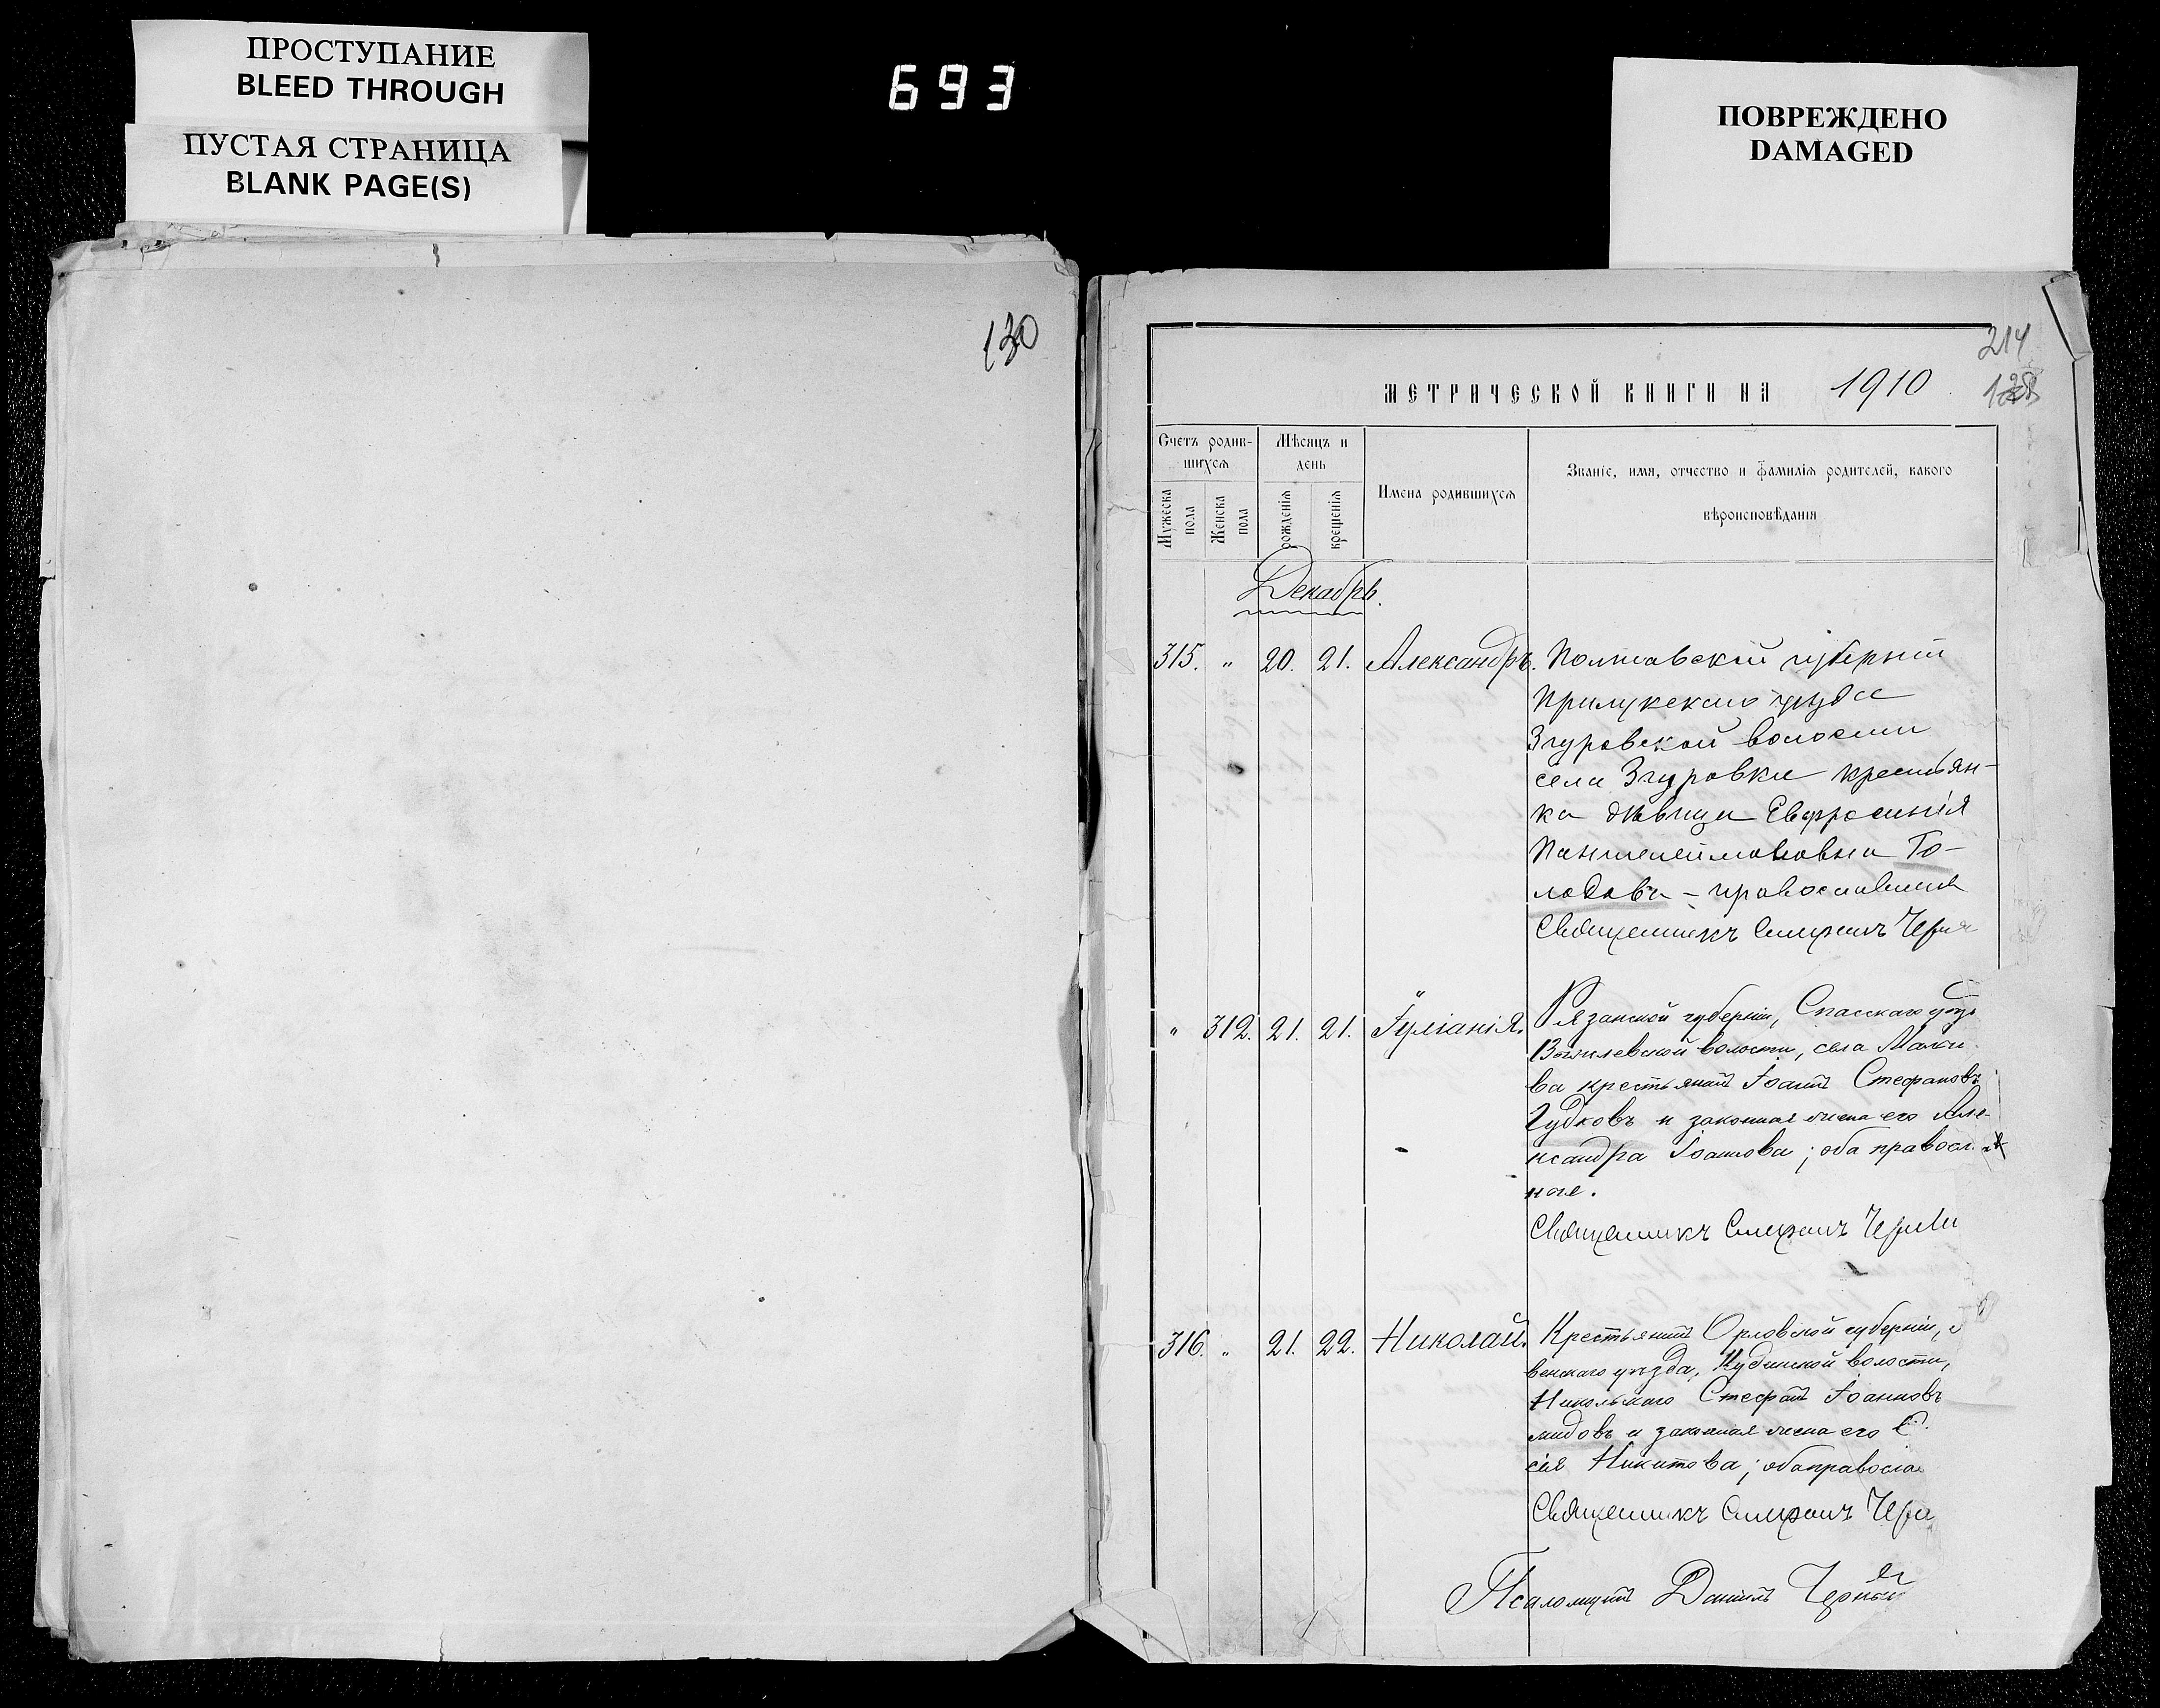 ПРОСТУПАНИЕ
BLEED THROUGH
ПУСТАЯ СТРАНИЦА
BLANK PAGE(S)
693
ПОВРЕЖДЕНО
DAMAGED
130
214
МЕТРИЧЕСКОЙ КНИГИ НА 1910
Счетъ родившихся
Мѣсяцъ и день
Имена родившихся
Званіе, имя, отчество и фамилія родителей, какого
вѣроисповѣданія
Мужеска пола
Женска пола
рожденія
крещенія
Декабрь.
315. „ 20. 21. Александръ. Полтавской губерніи
Прилукскаго уѣзда
Згуровской волости
села Згуровки крестьян-
ка дѣвица Евфросинія
Пантелеймоновна Го-
лодовъ - православная
Священникъ Симеонъ
„ 312. 21. 21. Іуліанія. Рязанской губерніи, Спасскаго уѣз
волости, села
ва крестьянинъ Іоаннъ Стефановъ
Гудковъ и законная жена его Але-
ксандра Іоаннова; оба правосл
ные.
Священникъ Симеонъ
316. „ 21. 22. Николай. Крестьянинъ Орловской губерніи,
венскаго уѣзда, волости,
Никольскаго Стефанъ Іоанновъ
мидовъ и законная жена его
сія Никитова; оба правосла
Священникъ Симеонъ
Псаломщикъ Даніилъ Черный